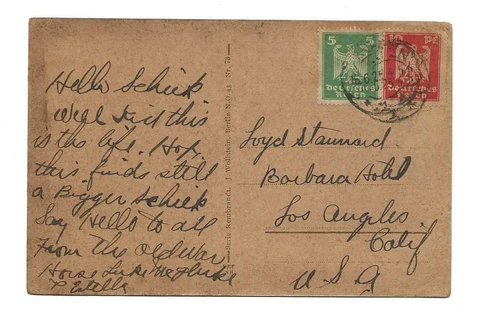 Hello Schiek
Well Kid this
is the life. Hop,
this finds still
a Bigger Schiek
Say Hello to all
From the Old War
Horse Luke McGluke
Estella
Serie Rembrandt. J. Wollstein, Berlin N.O. 43 Nr. 73
5 5
Deutsches
Reich
10 Pf
Deutsches
Reich
Loyd Stannard
Barbara Hotel
Los Angeles
Calif
U.S.A